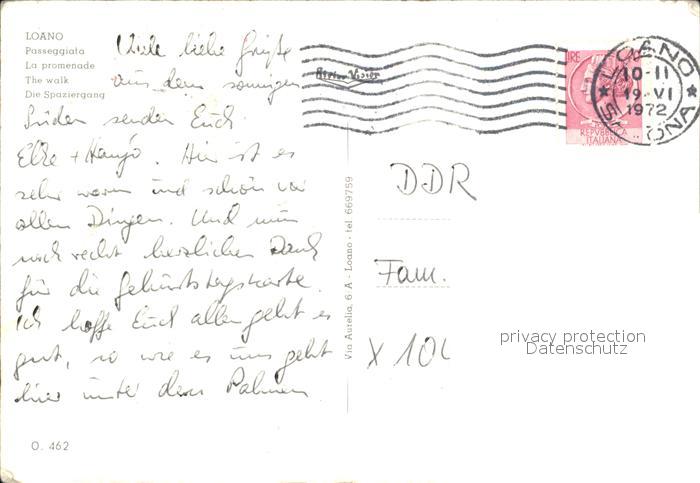 LOANO
Passeggiata
La promenade
The walk
Die Spaziergang
Viele liebe Grüße
aus dem sonnigen
Süden senden Euch
Elke + Hanjo. Hier ist es
sehr warm und schön vor
allen Dingen. Und nun
noch recht herzlichen Dank
für die Geburtstagskarte.
Ich hoffe Euch allen geht es
gut, so wie es uns geht
hier unter den Palmen
O. 462
Via Aurelia, 6 A - Loano - tel. 669759
LOANO
10-11
19.VI
1972
REPVBBLICA
ITALIANA
DDR
Fam.
X 10
privacy protection
Datenschutz